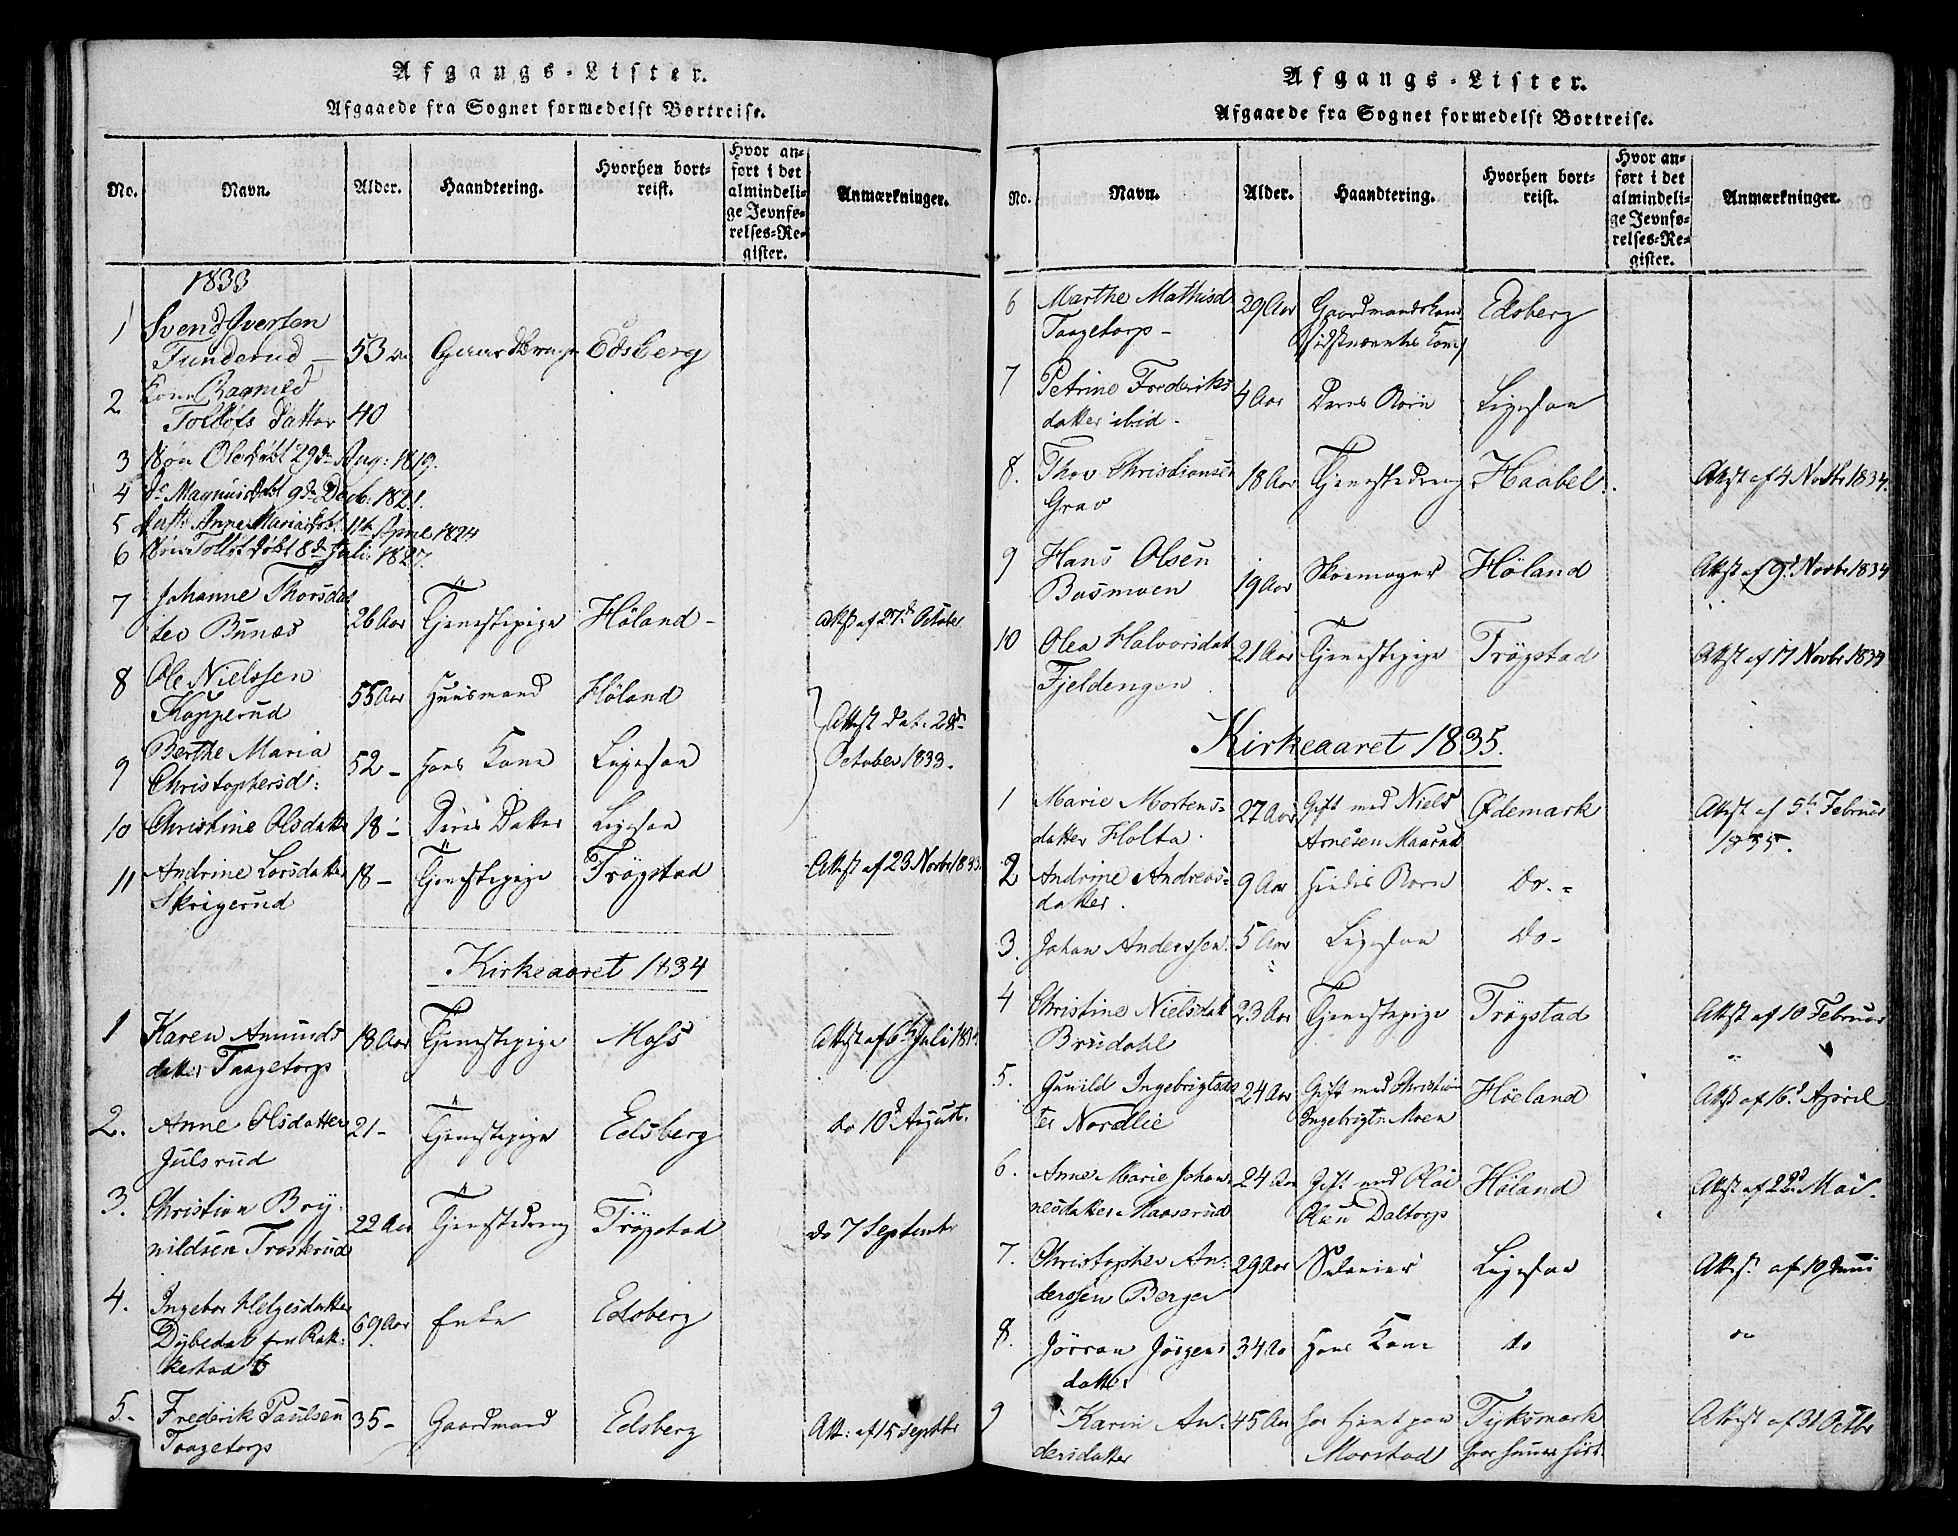 Afgangs-Lister.
Afgaaede fra Sognet formedelst Bortreise.
No. Navn. Alder. Haandtering. Hvorhen bortreist. Hvor anført i det almindelige Jevnførelses-Register. Anmærkninger.
1833
1 Svend Iversen
Tunderud — 53 Gaardbruger Edsberg
2 Kone Ragnild
Tollofs Datter 40
3 Søn Ole døbt 29de Aug: 1819.
4 Do Magnus døbt 9de Decb: 1821.
5 Datt: Anne Maria døbt 11te April 1824
6 Søn Tollof døbt 8de Juli: 1827.
7 Johanne Thorsdat
ter Bunæs 26 Aar Tjenestepige Høland - Attest af 27de October
8 Ole Nielssen
Kopperud 55 Aar Huusmand Høland
Attest dat: 28de
October 1833.
9 Berthe Maria
Christophersd: 52 - Hans Kone Ligesaa
10 Christine Olsdatter 18 - Deres Datter Ligesaa
11 Andrine Larsdatter 18 - Tjenestepige Trøgstad Attest af 23 Novbr 1833.
Skrigerud
Kirkeaaret 1834
1 Karen Amunds
datter Taagetorp 18 Aar Tjenestepige Moss Attest af 6te Juli 1834
2. Anne Olsdatter 21 - Tjenestepige Edsberg do 10d August.
Julsrud
3. Christian Bry-
nildsen Trosterud 22 Aar Tjenestedreng Trøgstad do 7 Septembr
4. Ingebor Helgesdatter
Dybedal fra Rak- 69 Aar Enke Edsberg
kestad
5. Frederik Paulsen 35 - Gaardmand Edsberg Att: af 15 Septbr
Taagetorp
Afgangs-Lister.
Afgaaede fra Sognet formedelst Bortreise.
No. Navn. Alder. Haandtering. Hvorhen bortreist. Hvor anført i det almindelige Jevnførelses-Register. Anmærkninger.
6 Marthe Mathisd 29 Aar Gaardmandskone Edsberg
Taagetorp - sidstnævntes Kone
7 Petrine Frederiks
datter ibid - 4 Aar Deres Barn Ligesaa
8. Thor Christiansen 18 Aar Tjenestedreng Haabel. Attest af 4 Novbr 1834.
Grav
9 Hans Olsen
Busmoen 19 Aar Skoemager Høland Attest af 9d Novbr 1834
10 Olea Halvorsdat 21 Aar Tjenestepige Trøgstad Attest af 17 Novbr 1834
Fjeldengen
Kirkeaaret 1835.
1 Marie Mortens- 27 Aar Gift med Niels Ødemark Attest af 5te Februar
datter Holta. Arnesen Maarud 1835.
2 Andrine Andreas- 9 Aar Hendes Barn Do. -
datter.
3. Johan Anderssen 5 Aar Ligesaa Do -
4 Christine Nielsdat 23 Aar Tjenestepige Trøgstad Attest af 10 Februar
Brudahl
5. Gunild Ingebrigtsdat 24 Aar Gift med Christian Høeland Attest af 16d April
ter Nordlie Ingebrigts: Moen
6. Anne Marie Johan 24 Aar Gift med Olai Høland Attest af 22d Mai.
nesdatter Maaserud Olsen Daltorp
7. Christopher An- 29 Aar Ligesaa Attest af 19 Juni
derssen Berger
8. Jørran Jørgens 34 Aar Hans Kone do
datter
9 Karin An- 45 Aar har tjent paa Tyksmark Attest af 31 Octbr
dersdatter Morstad